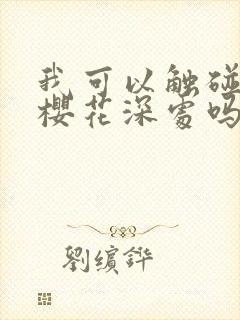 我可以触碰
樱花深处吗
劉缤鏵